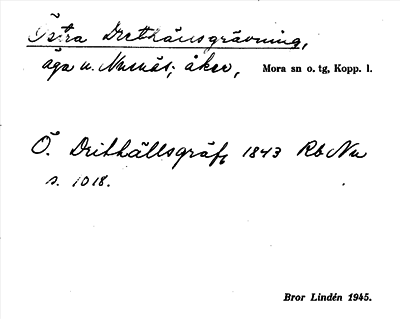 Östra Drethällsgrävning,
äga u. Nusnäs; åker, Mora sn o. tg, Kopp. l.
Ö. Drithällsgräfg 1843 Rb Nu
s. 1018.
Bror Lindén 1945.